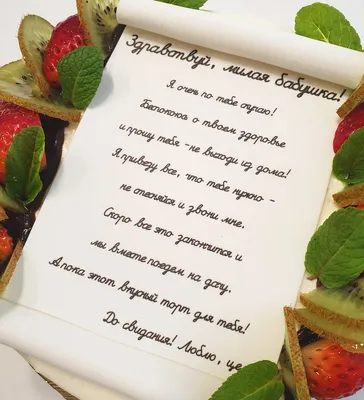 Здравствуй, милая бабушка!
Я очень по тебе скучаю!
Беспокоюсь о твоем здоровье
и прошу тебя - не выходи из дома!
Я привезу все, что тебе нужно -
не стесняйся и звони мне.
Скоро все это закончится и
мы вместе поедем на дачу.
А пока этот вкусный торт для тебя!
До свидания! Люблю, це